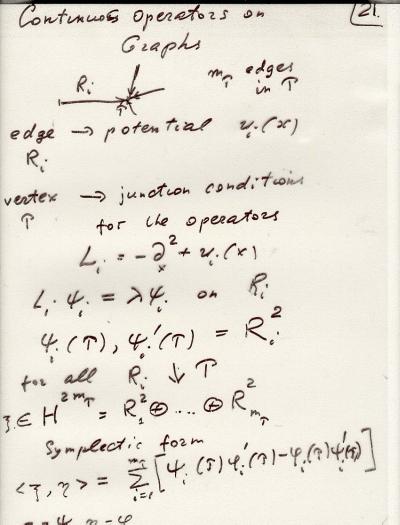 Continuous Operators on
21.
Graphs
R_i
m_T edges
in T
T
edge → potential u_i(x)
R_i
vertex → junction conditions
T
for the operators
L_i = -∂_x^2 + u_i(x)
L_i ψ_i = λψ_i on R_i
ψ_i(T), ψ_i'(T) = R_i^2
for all R_i ↓ T
ξ ∈ H^{2m_T} = R_1^2 ⊕ .... ⊕ R_{m_T}^2
Symplectic form
<ξ, η> = Σ_{i=1}^{m_T} [ψ_i(T) φ_i'(T) - φ_i(T) ψ_i'(T)]